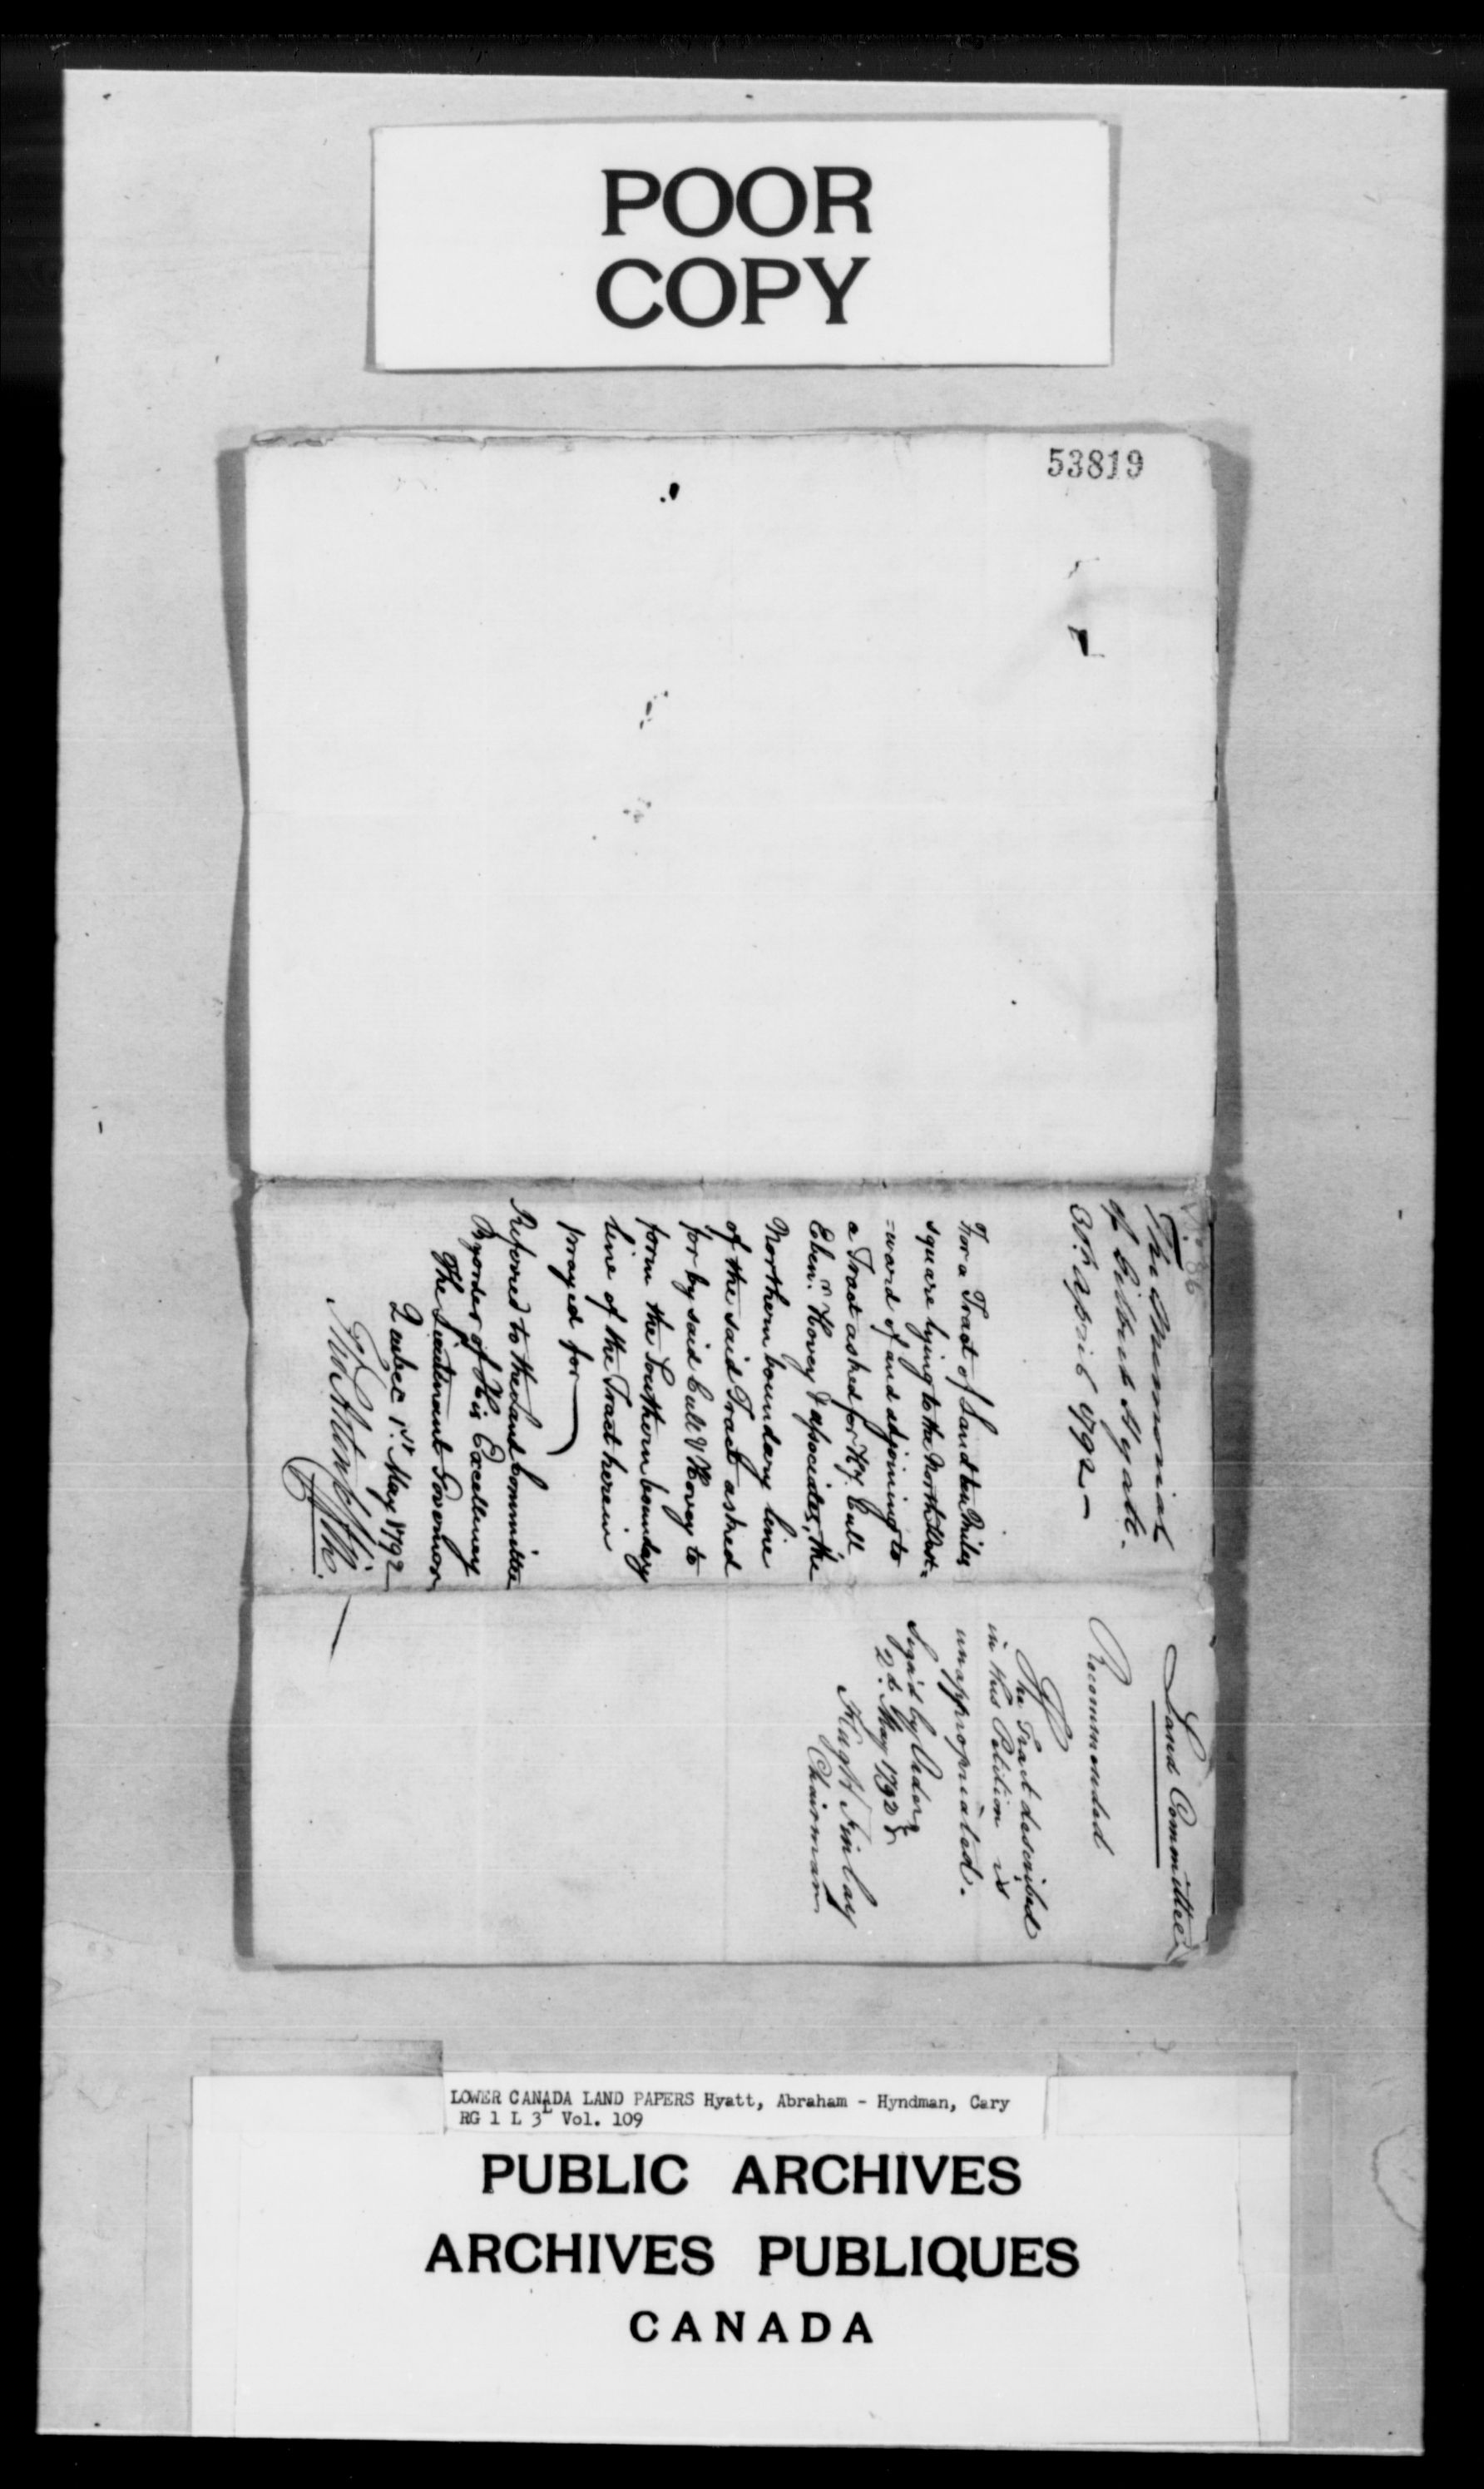 POOR
COPY
53819
The Memorial
of Gilbert Hyatt.
30th April 1792 —
For a Tract of Land ten Miles
square lying to the North West=
=ward of and adjoining to
a Tract asked for Hy. Cull
Eben.r Hovey & associates, the
Northern boundary line
of the said Tract asked
for by said Cull & Hovey to
form the Southern boundary
line of the Tract herein
prayed for
Referred to the Land Committee
By order of His Excellency
The Lieutenant Governor
Quebec 1st May 1792
Land Committee
Recommended
If
The Tract described
in this Petition is
unappropriated.
Sign'd by Order
2d. May 1792
Hugh Finlay
Chairman
LOWER CANADA LAND PAPERS Hyatt, Abraham - Hyndman, Cary
RG 1 L 3L Vol. 109
PUBLIC ARCHIVES
ARCHIVES PUBLIQUES
CANADA